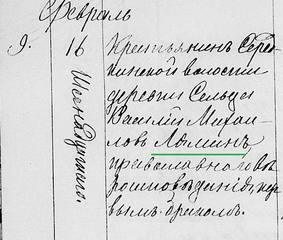 Февраль
9. 16 Шестнадцатаго.
Крестьянинъ
волости
деревни Сельца
Василій Михаи-
ловъ Ляминъ
православнаго вѣ-
роисповѣданія, пер-
вымъ бракомъ.